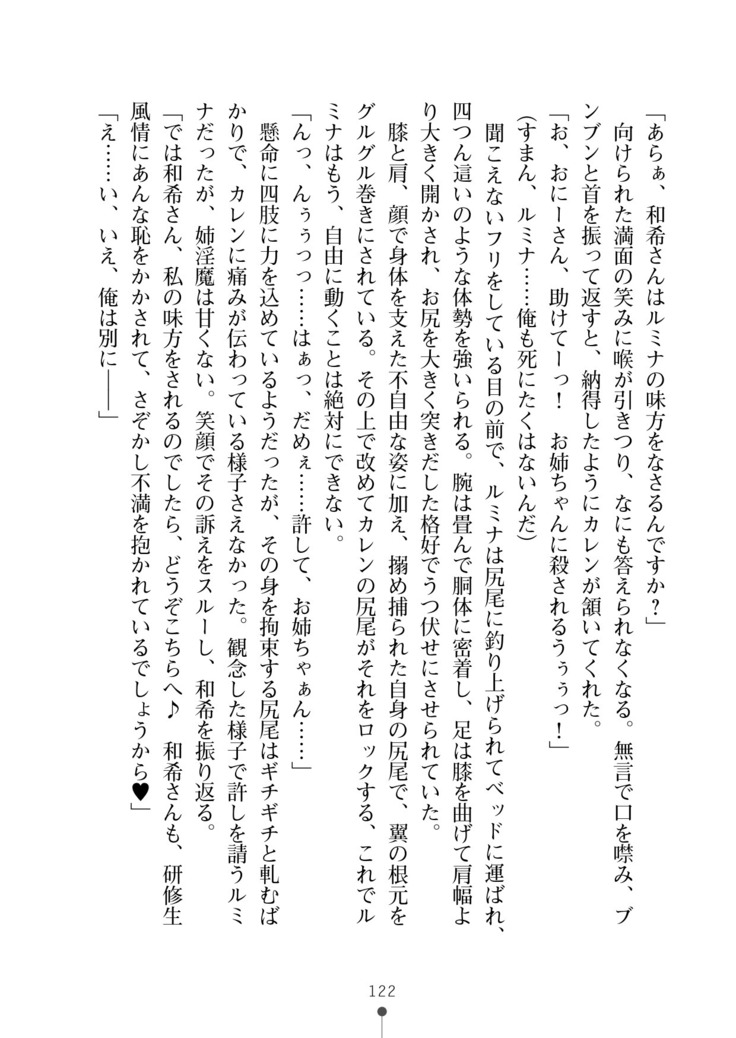 「あらぁ、和希さんはルミナの味方をなさるんですか？」
　向けられた満面の笑みに喉が引きつり、なにも答えられなくなる。無言で口を噤み、ブ
ンブンと首を振って返すと、納得したようにカレンが頷いてくれた。
「お、おにーさん、助けてーっ！　お姉ちゃんに殺されるうぅぅっ！」
（すまん、ルミナ……俺も死にたくはないんだ）
　聞こえないフリをしている目の前で、ルミナは尻尾に釣り上げられてベッドに運ばれ、
四つん這いのような体勢を強いられる。腕は畳んで胴体に密着し、足は膝を曲げて肩幅よ
り大きく開かされ、お尻を大きく突きだした格好でうつ伏せにさせられていた。
　膝と肩、顔で身体を支えた不自由な姿に加え、搦め捕られた自身の尻尾で、翼の根元を
グルグル巻きにされている。その上で改めてカレンの尻尾がそれをロックする、これでル
ミナはもう、自由に動くことは絶対にできない。
「んっ、んぅぅっっ……はぁっ、だめぇ……許して、お姉ちゃぁん……」
　懸命に四肢に力を込めているようだったが、その身を拘束する尻尾はギチギチと軋むば
かりで、カレンに痛みが伝わっている様子さえなかった。観念した様子で許しを請うルミ
ナだったが、姉淫魔は甘くない。笑顔でその訴えをスルーし、和希を振り返る。
「では和希さん、私の味方をされるのでしたら、どうぞこちらへ♪　和希さんも、研修生
風情にあんな恥をかかされて、さぞかし不満を抱かれているでしょうから♥」
「え……い、いえ、俺は別に――」
122